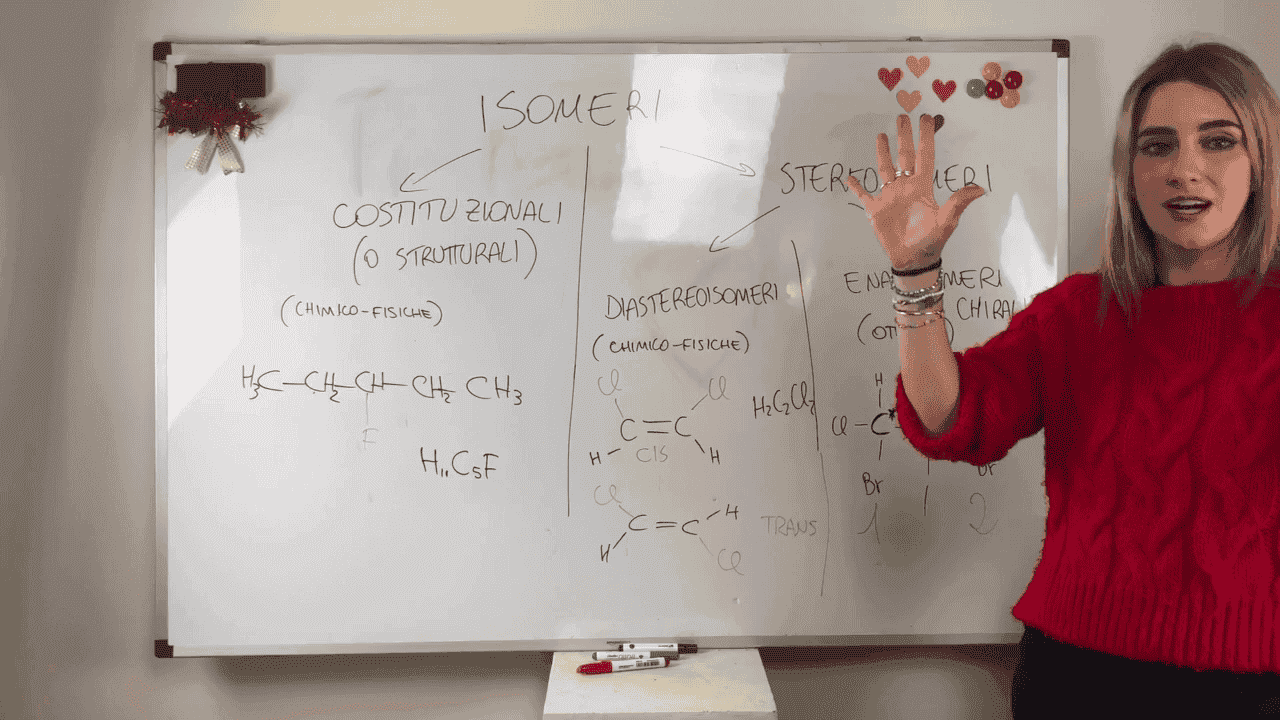 ISOMERI
COSTITUZIONALI
(O STRUTTURALI)
(CHIMICO-FISICHE)
H₃C-CH₂-CH-CH₂ CH₃
F
H₁₁C₅F
DIASTEREOISOMERI
(CHIMICO-FISICHE)
Cl Cl
C=C
H CIS H
H₂C₂Cl₂
Cl H
C=C
H Cl
TRANS
CHIRAL
H
Cl-C*
Br
1 2